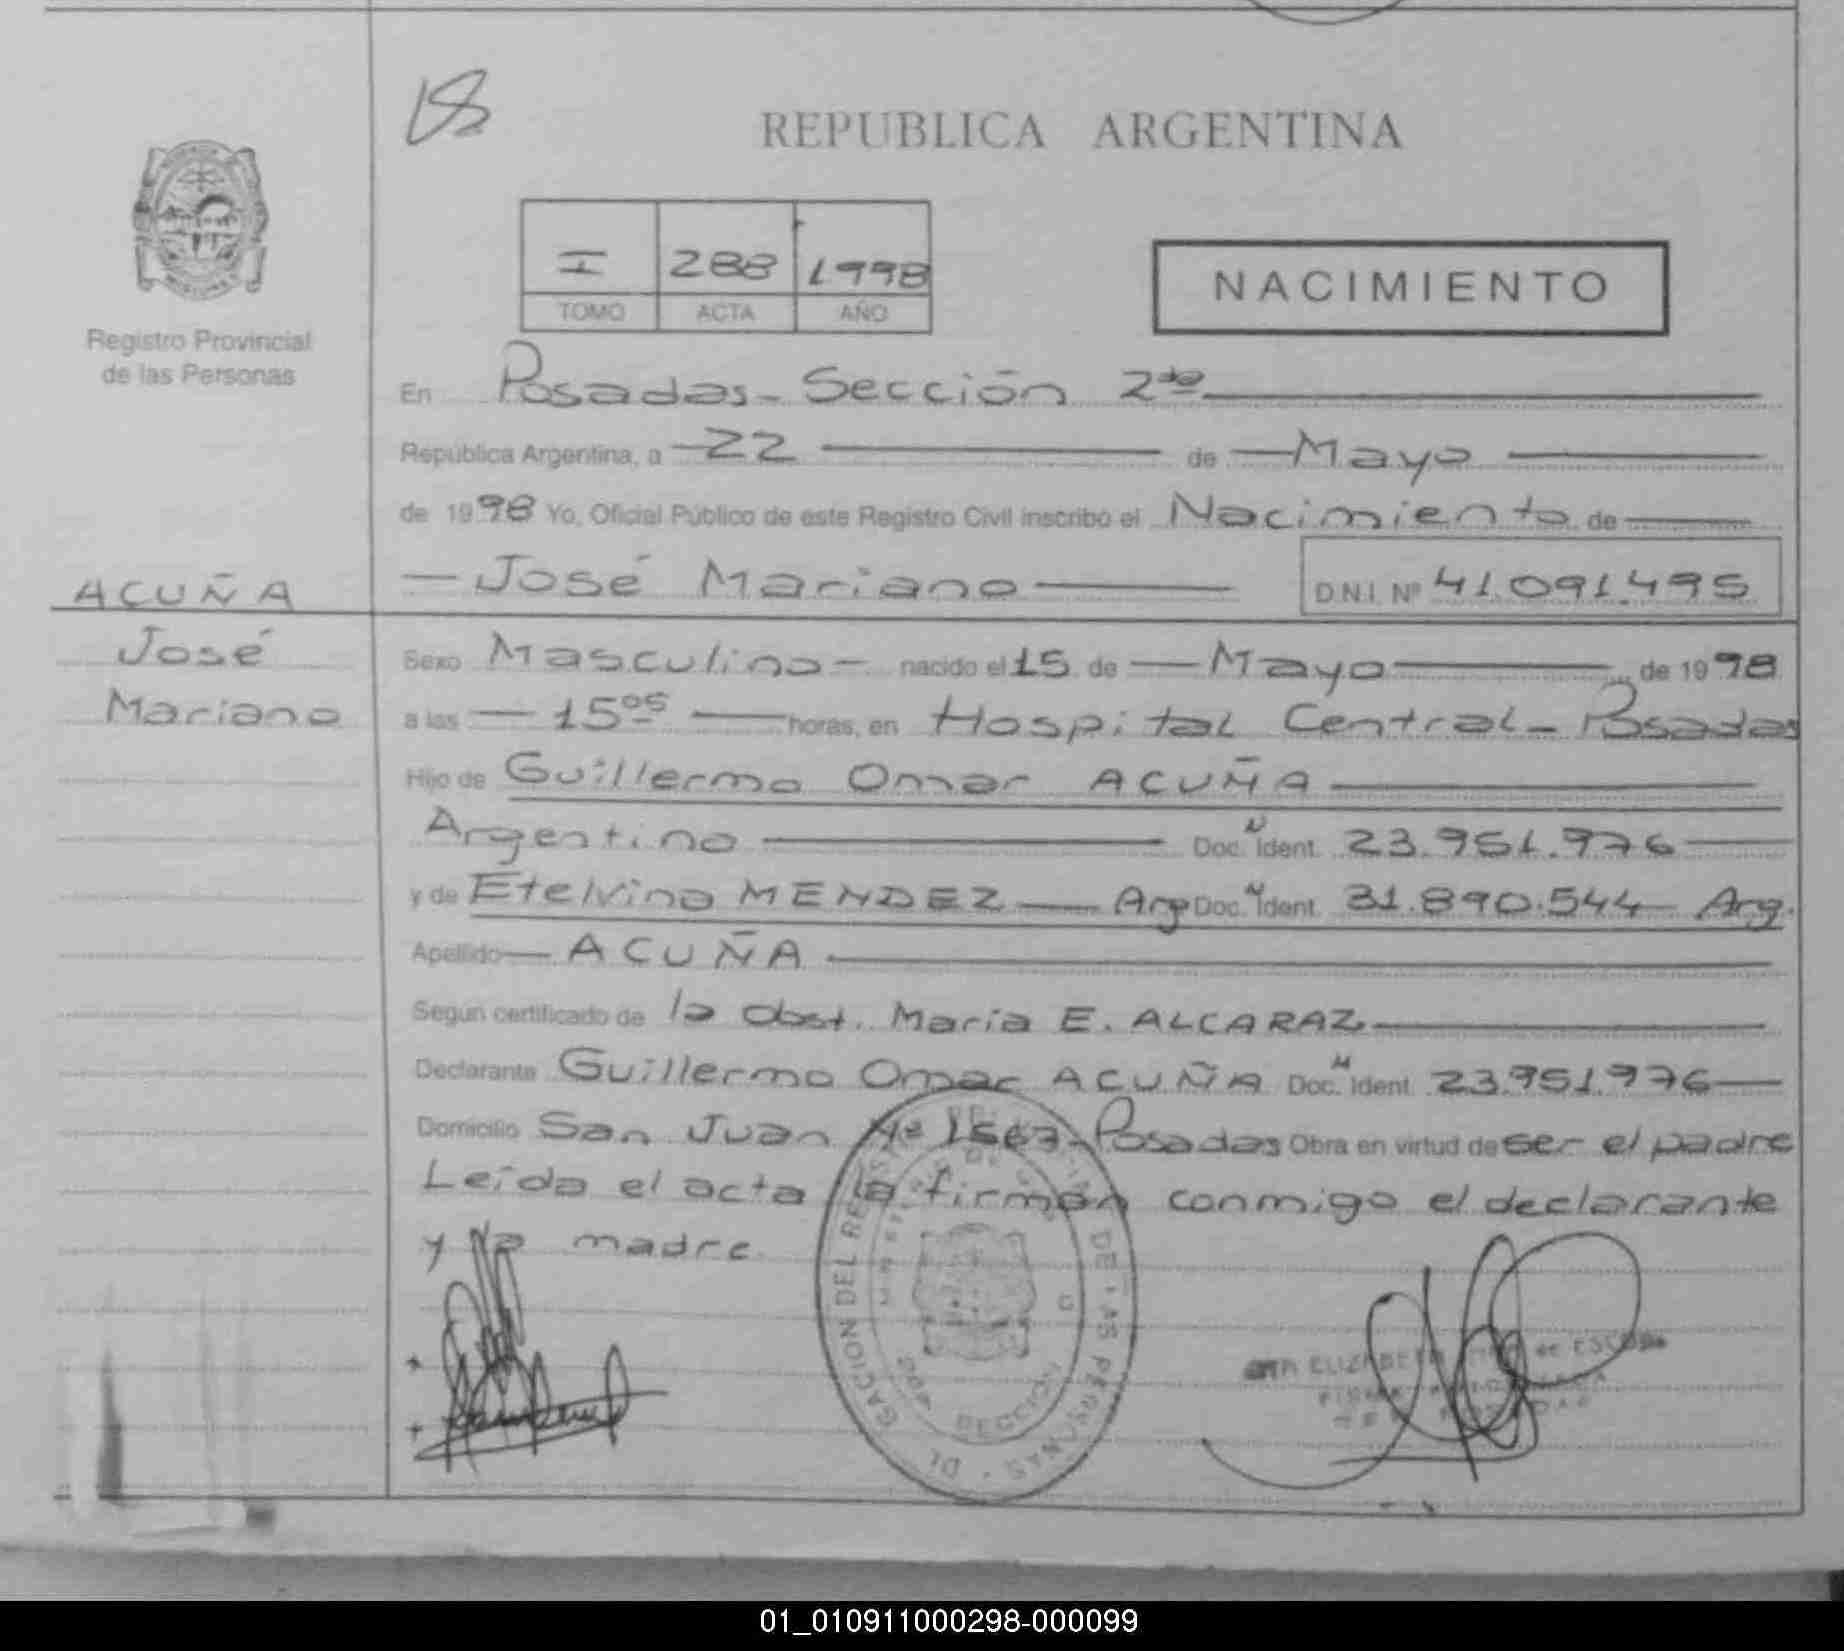 18
REPUBLICA ARGENTINA
I 288 1998
TOMO ACTA AÑO
NACIMIENTO
Registro Provincial
de las Personas
En Posadas - Sección 2da
República Argentina, a 22 de Mayo
de 1998 Yo, Oficial Público de este Registro Civil inscribo el Nacimiento de
José Mariano D.N.I. Nº 41.091.495
ACUÑA
José
Mariano
Sexo Masculino - nacido el 15 de Mayo de 1998
a las 15 05 horas, en Hospital Central - Posadas
Hijo de Guillermo Omar ACUÑA
Argentino Doc. N Ident. 23.951.976
y de Etelvina MENDEZ Arg Doc. N Ident. 31.890.544 Arg.
Apellido ACUÑA
Según certificado de la Obst. María E. ALCARAZ
Declarante Guillermo Omar ACUÑA Doc. N Ident. 23.951.976
Domicilio San Juan Nº Posadas Obra en virtud de ser el padre
Leída el acta la firman conmigo el declarante
y la madre
DEL DE LAS PERSONAS
ELIZABETH de
01_010911000298-000099